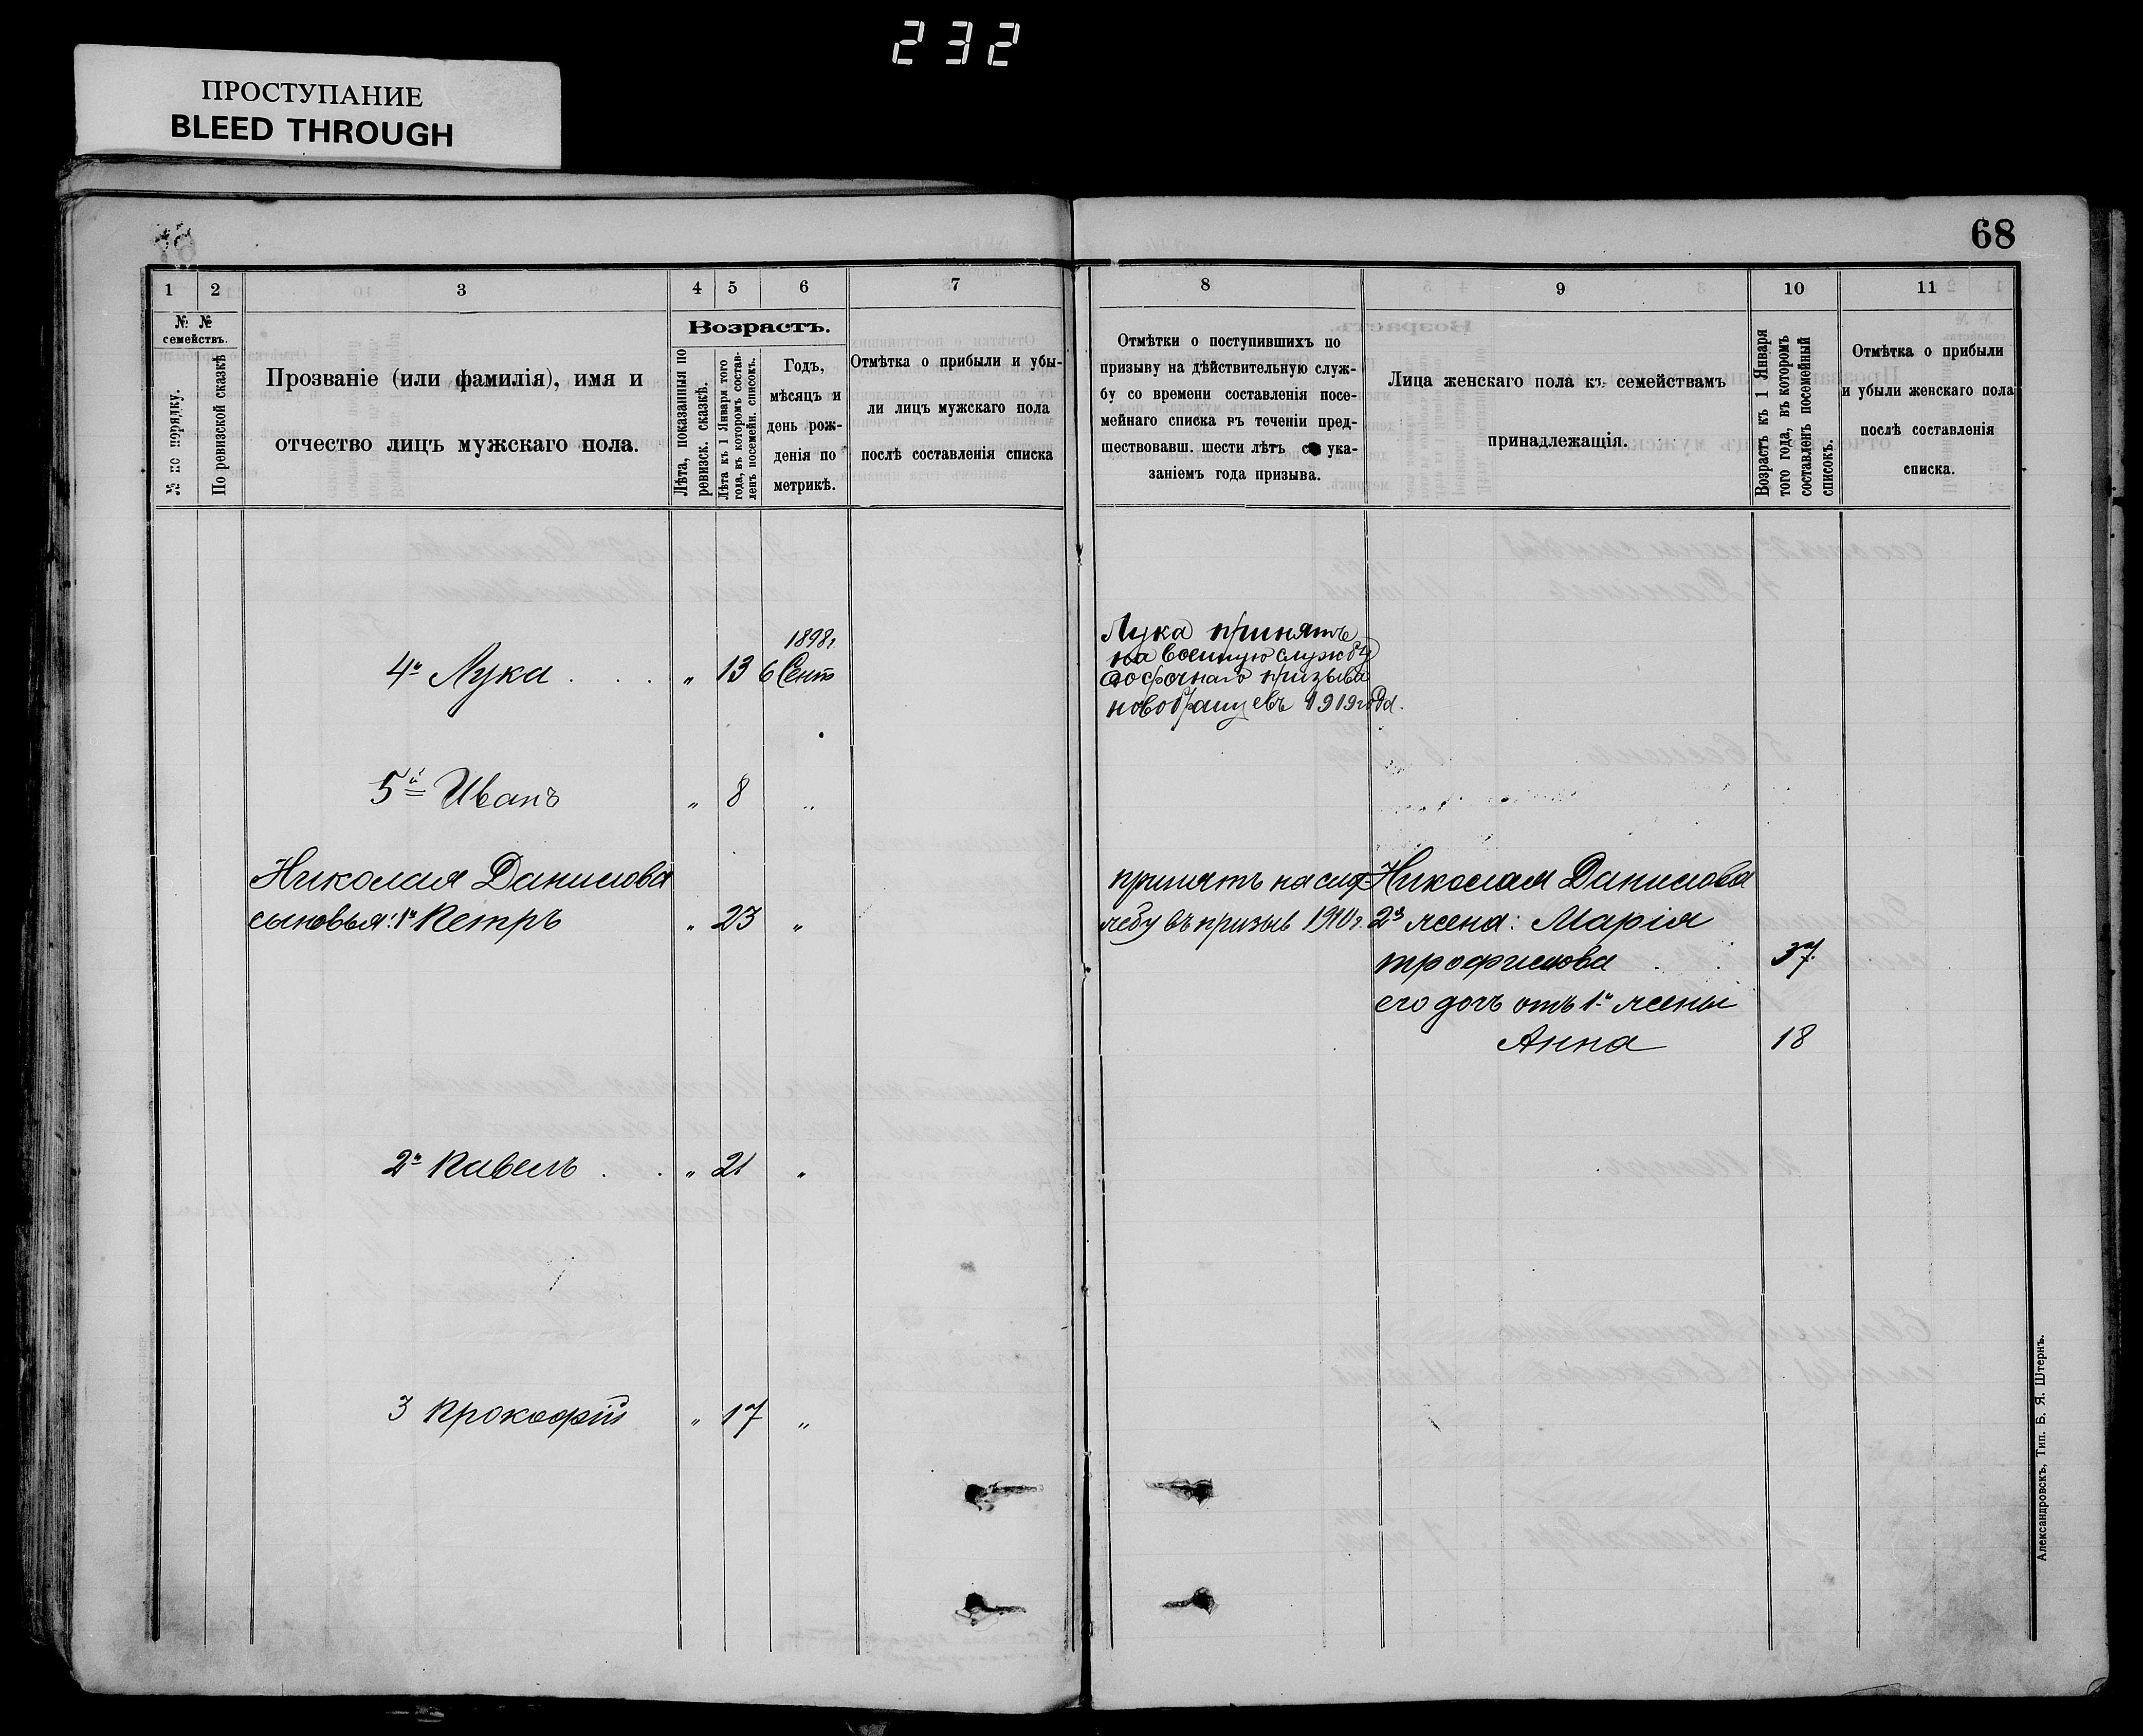 232
ПРОСТУПАНИЕ
BLEED THROUGH
68
1 2 3 4 5 6 7 8 9 10 11
№ № семействъ.
№ по порядку.
По ревизской сказкѣ
Прозваніе (или фамилія), имя и
отчество лицъ мужскаго пола.
Возрастъ.
Лѣта, показанныя по
ревизск. сказкѣ.
Лѣта къ 1 Января того
года, въ которомъ состав-
ленъ посемейн. списокъ.
Годъ,
мѣсяцъ и
день рож-
денія по
метрикѣ.
Отмѣтка о прибыли и убы-
ли лицъ мужскаго пола
послѣ составленія списка
Отмѣтки о поступившихъ по
призыву на дѣйствительную служ-
бу со времени составленія посе-
мейнаго списка въ теченіи пред-
шествовавш. шести лѣтъ съ ука-
заніемъ года призыва.
Лица женскаго пола къ семействамъ
принадлежащія.
Возрастъ къ 1 Января
того года, въ которомъ
составленъ посемейный
списокъ.
Отмѣтка о прибыли
и убыли женскаго пола
послѣ составленія
списка.
1898г
4й Лука . . . „ 13 6 Сент
Лука принятъ
на военную службу
досрочнаго призыва
новобранцевъ 1919года.
5й Иванъ „ 8 „
Николая Данилова
сыновья: 1й Петръ „ 23 „
принятъ на слу
жбу въ призыв 1910г.
Николая Данилова
2я жена: Марія
Трофимова . . 37
его дочь отъ 1й жены
Анна 18
2й Павелъ . . „ 21 „
3 Прокофій „ 17 „
Александровскъ, Тип. Б. Я. Штернъ.